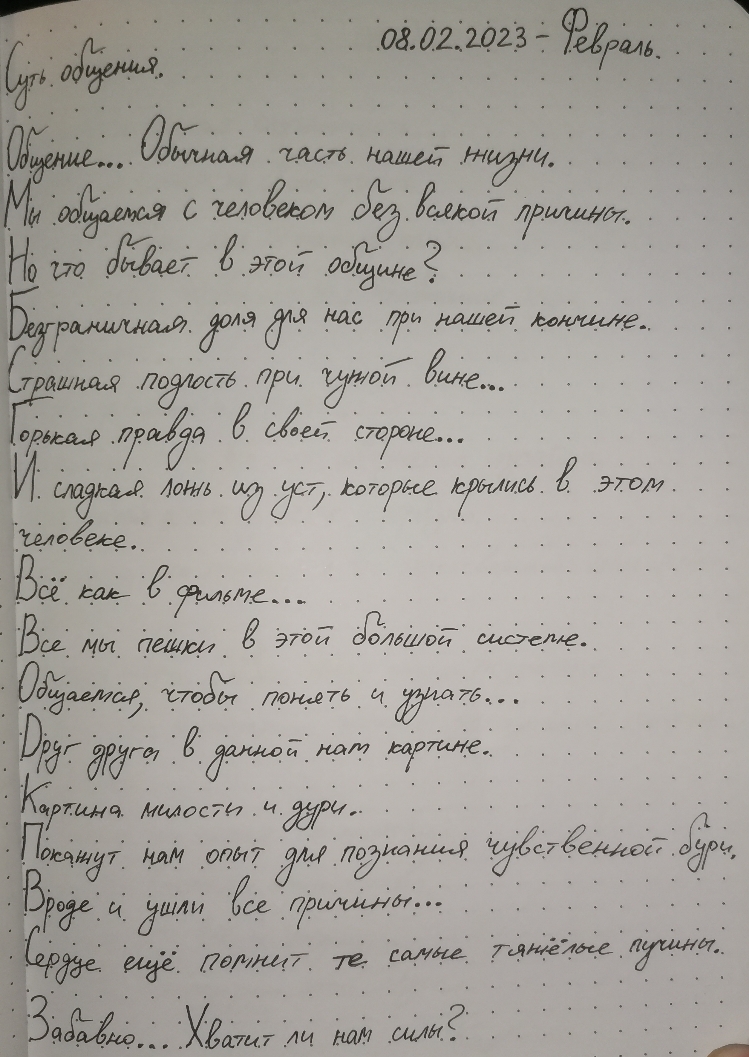 08.02.2023 - Февраль.
Суть общения.
Общение... Обычная часть нашей жизни.
Мы общаемся с человеком без всякой причины.
Но что бывает в этой общине?
Безграничная доля для нас при нашей кончине.
Страшная подлость при чужой вине...
Горькая правда в своей стороне...
И сладкая ложь из уст, которые крылись в этом
человеке.
Всё как в фильме...
Все мы пешки в этой большой системе.
Общаемся, чтобы понять и узнать...
Друг друга в данной нам картине.
Картина милости и дури.
Покажут нам опыт для познания чувственной бури.
Вроде и ушли все причины...
Сердце ещё помнит те самые тяжёлые пучины.
Забавно... Хватит ли нам силы?